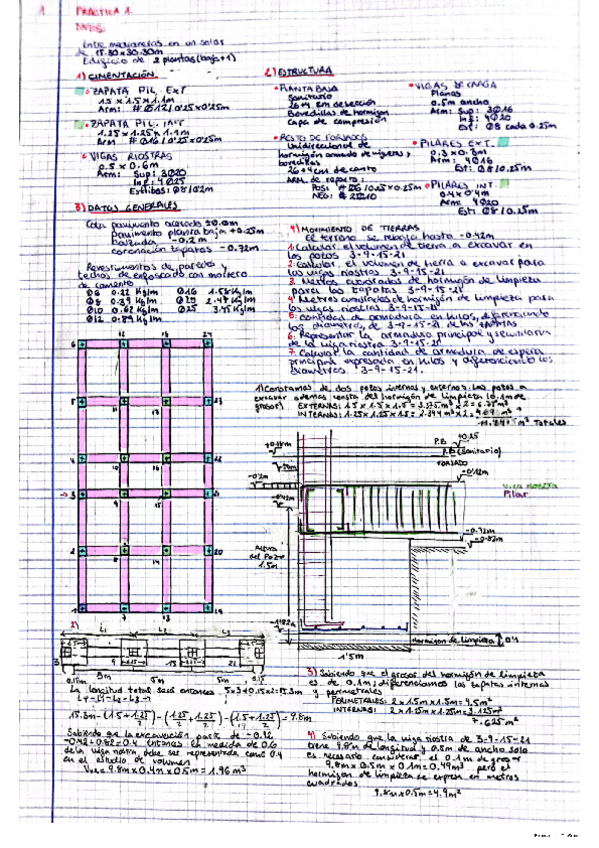 1 PRÁCTICA 1.
DATOS:
Entre medianeras en un solar
de 15.30x30.30m
Edificio de 2 plantas (baja+1)
1) CIMENTACIÓN
ZAPATA PIL. EXT
1.5 x 1.5 x 1.1m
Arm: # Ø12/0.25x0.25m
ZAPATA PIL. INT
1.25 x 1.25 x 1.1m
Arm # Ø16/0.25x0.25m
VIGAS RIOSTRAS
0.5 x 0.6m
Arm: Sup: 3Ø20
Inf: 4Ø25
Estribos: Ø8/0.2m
2) ESTRUCTURA
PLANTA BAJA
Sanitario
26+4 cm de sección
Bovedillas de hormigón
Capa de compresión
RESTO DE FORJADOS
Unidireccional de
hormigón armado de viguetas y
bovedillas
26+4cm de canto
Arm. de reparto:
Posi: # Ø6/0.25x0.25m
Neg: # 2Ø10
VIGAS DE CARGA
Planas
0.5m ancho
Arm: Sup: 3Ø16
Inf: 4Ø20
Est: Ø8 cada 0.25m
PILARES EXT.
0.3 x 0.3m
Arm: 4Ø16
Est: Ø8/0.25m
PILARES INT.
0.4 x 0.4m
Arm: 4Ø20
Est: Ø8/0.25m
3) DATOS GENERALES
Cota pavimento acerado ±0.0m
pavimento planta baja +0.25m
- 0.2m
coronación zapatas - 0.72m
Revestimientos de paredes y
techos de enfoscado con mortero
de cemento
Ø6 0.22 Kg/m Ø16 1.58Kg/m
Ø8 0.39 Kg/m Ø20 2.47 Kg/m
Ø10 0.62 Kg/m Ø25 3.85 Kg/m
Ø12 0.89 Kg/m
4) MOVIMIENTO DE TIERRAS
El terreno se rebaja hasta -0.42m
1. Calcular el volumen de tierra a excavar en
los pozos 3-9-15-21
2. Calcular el volumen de tierra a excavar para
las vigas riostras 3-9-15-21
3. Metros cuadrados de hormigón de limpieza
para las zapatas 3-9-15-21
4. Metros cuadrados de hormigón de limpieza para
las vigas riostras 3-9-15-21
5. Cantidad de armaduras en kilos, diferenciando
los diámetros, de 3-9-15-21 de las zapatas
6. Representar la armadura principal y secundaria
de la viga riostra 3-9-15-21
7. Calcular la cantidad de armadura de espera
principal expresada en kilos y diferenciando los
diámetros 3-9-15-21.
1) Constamos de dos pozos internos y externos. Los pozos a
excavar además consta del hormigón de limpieza (0.1m de
grosor) EXTERNAS: 1.5 x 1.5 x 1.5 = 3.375m³ x 2 = 6.75m³
INTERNAS: 1.25 x 1.25 x 1.5 = 2.344m³ x 2 = 4.69 m³ +
m³ Totales
6 12 18 24
5 11 17
4 10 16
3 9 15 21
2 8 14
1 7 13 19
+0.25
P.B
P.B (Sanitario)
FORJADO
-0.12m
-0.2m
-0.42m
VIGA RIOSTRA
Pilar
-0.72m
-0.82m
Altura
del Pozo
1.5m
-1.82m
Hormigón de limpieza
0'1
1'5m
2)
L1 L2 L3
3 9 15 21
0.15m 5m 5m 5m 0.15
La longitud total será entonces 5x3+0.15x2=15.3m
LT-L1-L2-L3
15.3m-(1.5+1.25/2)-(1.25/2+1.25/2)-(1.5+1.25/2)=9.8m
Sabiendo que la excavación parte de -0.42
-0.42+0.82=0.4 entonces la medida de 0.6
de la viga riostra debe ser representada como 0.4
en el estudio de volumen
9.8m x 0.4m x 0.5m = 1.96 m³
3) Sabiendo que el grosor del hormigón de limpieza
es de 0.1m; diferenciamos las zapatas internas
y perimetrales
PERIMETRALES: 2 x 1.5m x 1.5m = 4.5m²
INTERNAS: 2 x 1.25m x 1.25m = 3.125m²
7.625m²
4) Sabiendo que la viga riostra de 3-9-15-21
tiene 9.8m de longitud y 0.5m de ancho solo
es necesario considerar el 0.1m de grosor
9.8m x 0.5m x 0.1m = 0.49m³ pero el
hormigón de limpieza se expresa en metros
cuadrados
9.8m x 0.5m = 4.9m²